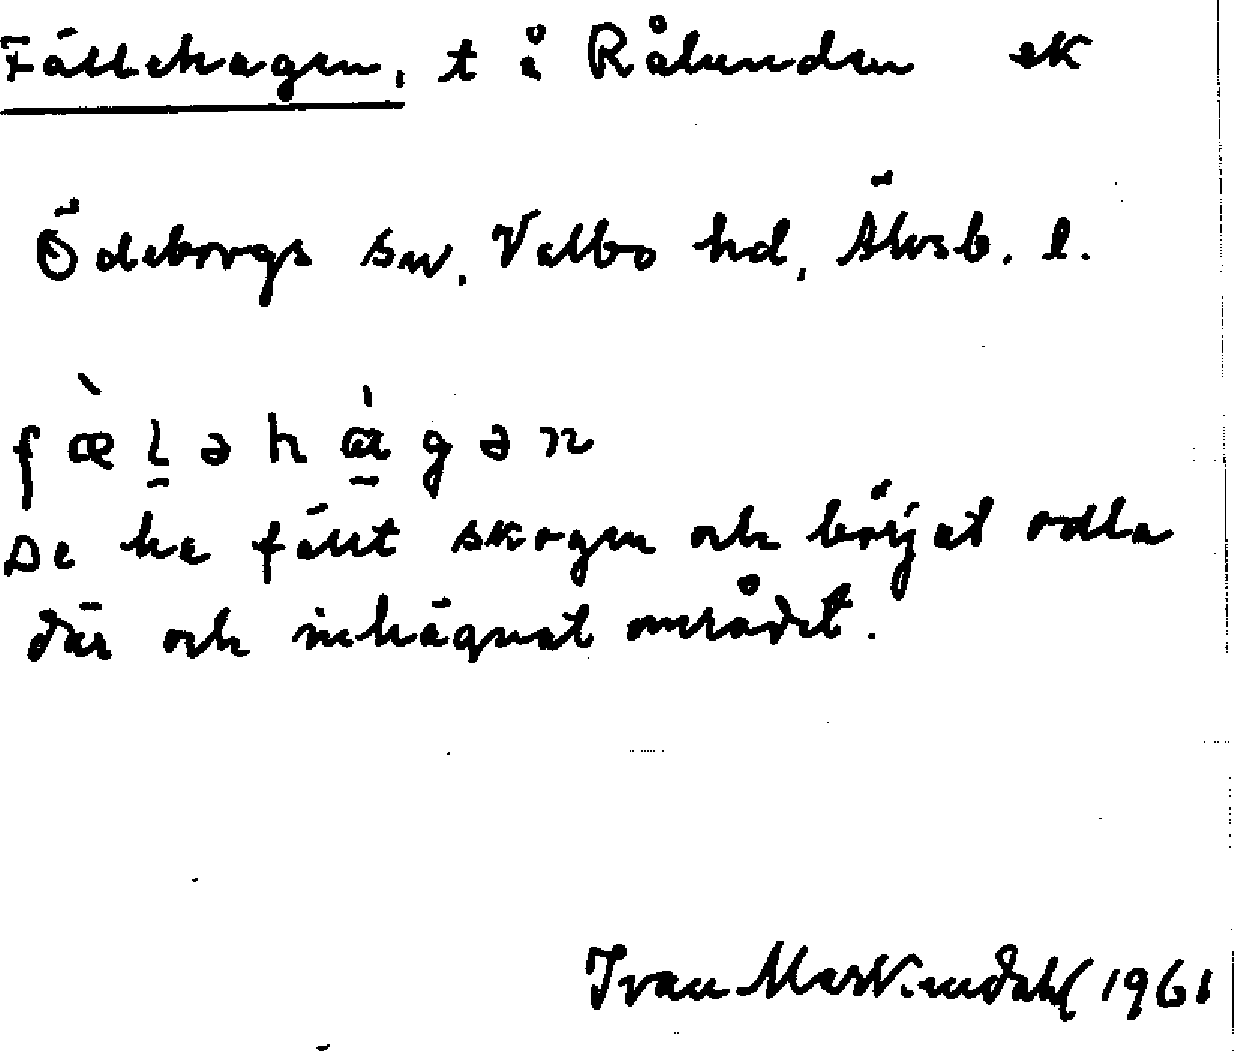 Fällehagen, t å Rålunden ek
Ödeborgs sn, Valbo hd, Älvsb. l.
fæ̀l̠əhɑ̠̀gən
De ha fällt skogen och börjat odla
där och inhägnat området.
Ivan Markendahl 1961